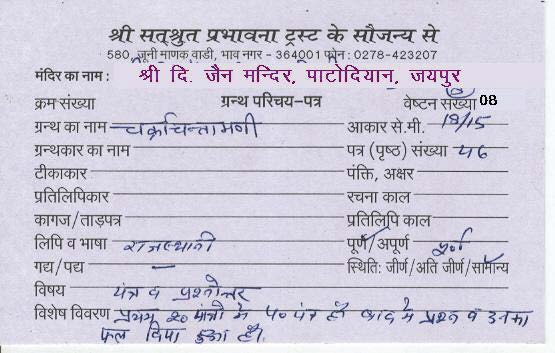 श्री सत्श्रुत प्रभावना ट्रस्ट के सौजन्य से
580, जूनी माणक वाडी, भाव नगर - 364001 फोन : 0278-423207
मंदिर का नाम : श्री दि. जैन मन्दिर, पाटोदियान, जयपुर
क्रम संख्या ग्रन्थ परिचय-पत्र वेष्टन संख्या 08
ग्रन्थ का नाम चक्रचिन्तामणी आकार से.मी. 18/15
ग्रन्थकार का नाम पत्र (पृष्ठ) संख्या 46
टीकाकार पंक्ति, अक्षर
प्रतिलिपिकार रचना काल
कागज/ताड़पत्र प्रतिलिपि काल
लिपि व भाषा राजस्थानी पूर्ण/अपूर्ण पूर्ण
गद्य/पद्य — स्थिति: जीर्ण/अति जीर्ण/सामान्य
विषय यंत्र व प्रश्नोत्तर
विशेष विवरण प्रथम 20 पत्रों में 40 यंत्र हैं बाद में प्रश्न व उनका
फल दिया हुआ है।